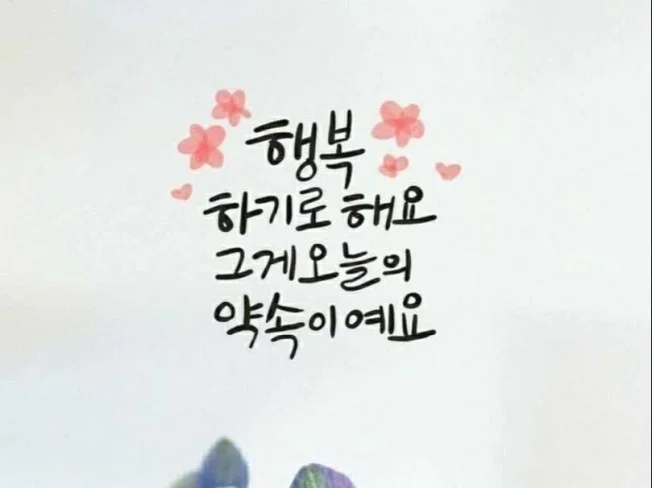 행복
하기로 해요
그게오늘의
약속이예요